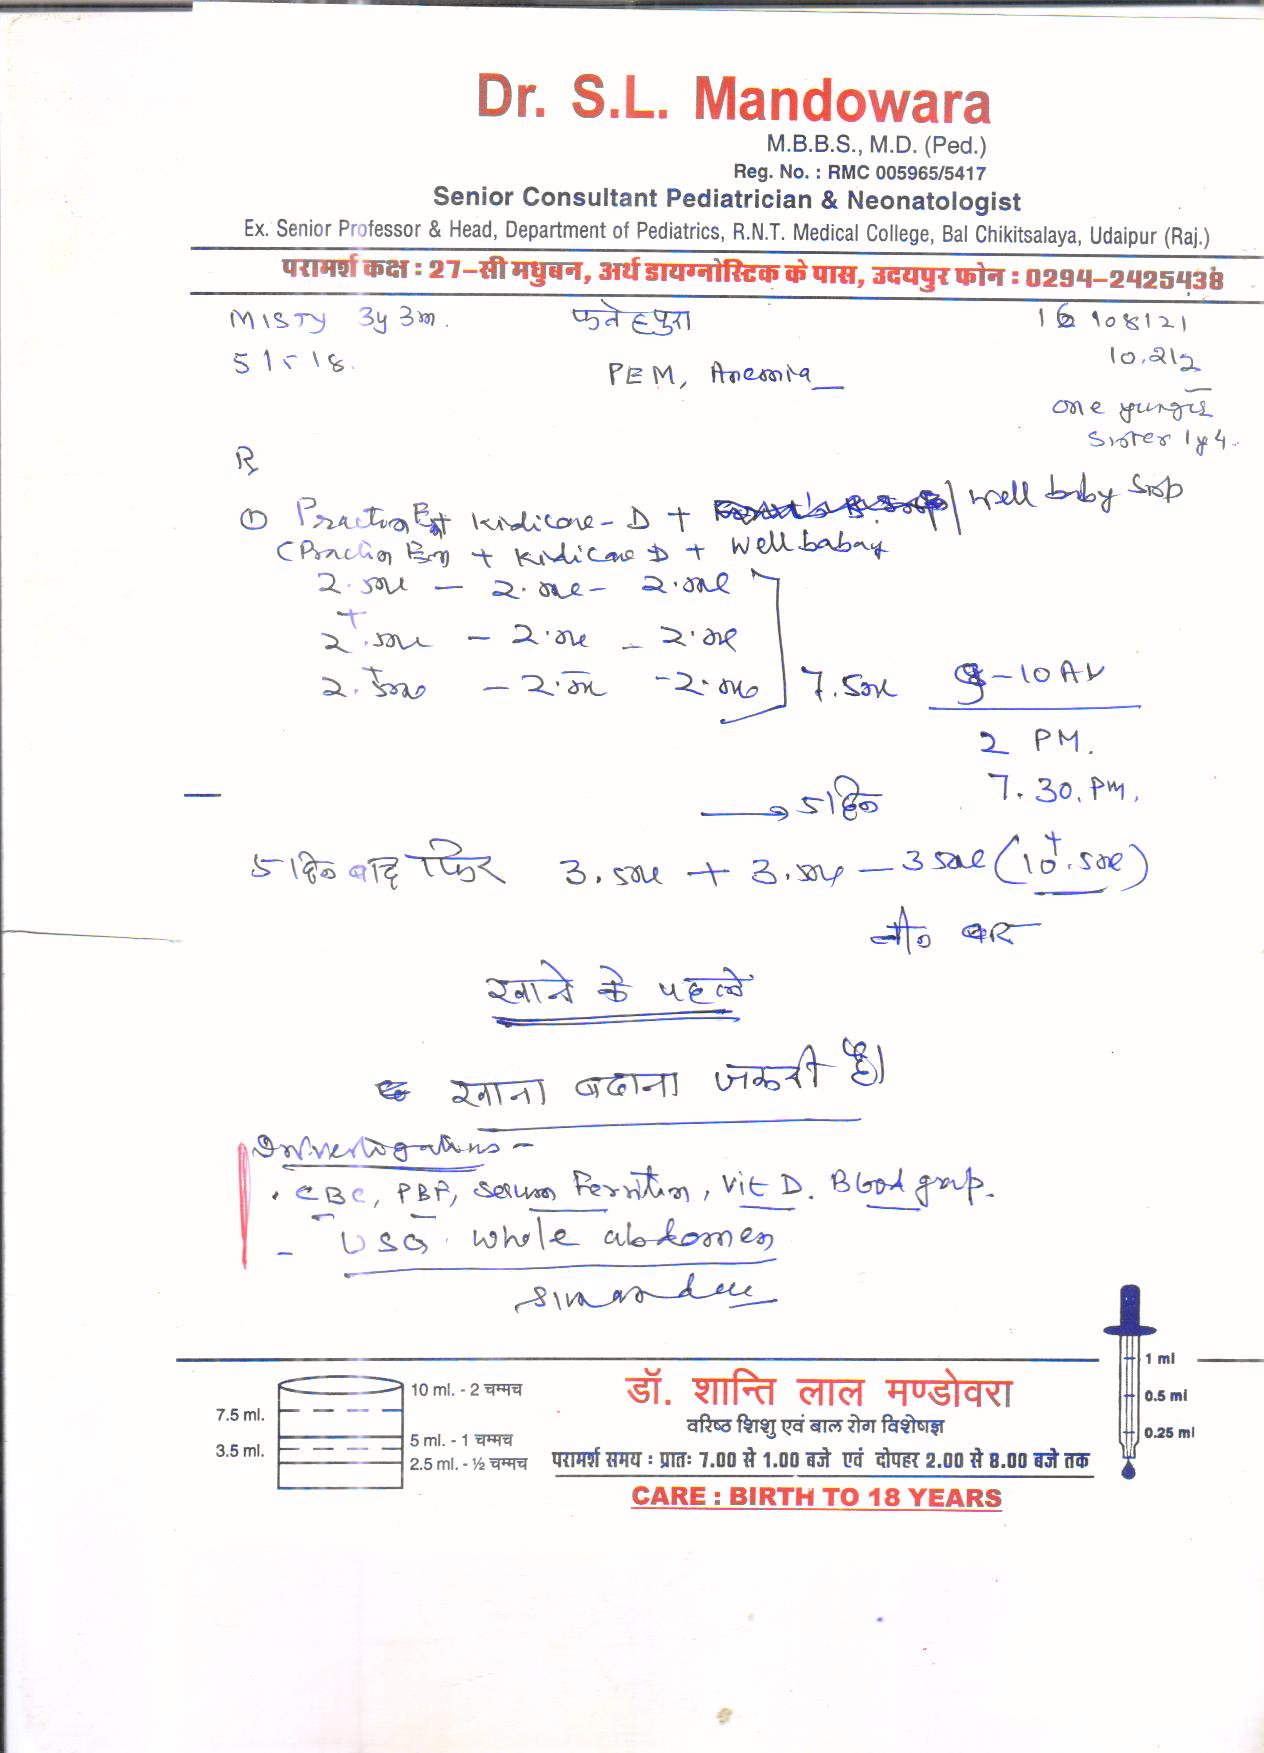 Dr. S.L. Mandowara
M.B.B.S., M.D. (Ped.)
Reg. No. : RMC 005965/5417
Senior Consultant Pediatrician & Neonatologist
Ex. Senior Professor & Head, Department of Pediatrics, R.N.T. Medical College, Bal Chikitsalaya, Udaipur (Raj.)
परामर्श कक्ष : 27-सी मधुबन, अर्थ डायग्नोस्टिक के पास, उदयपुर फोन : 0294-2425438
MISTY 3y 3m. फतेहपुरा
PEM, Anemia
one
Sister 1y 4
R
① + Kidicare - D + Well baby
+ Kidicare D + Well babay
2.5ml
+
2.5ml
+
7.5ml
2 PM.
7.30.PM.
5 दिन
5 दिन बाद फिर 3.5ml + 3.5ml - 3.5ml (10.5ml)
तीन बार
खाने के पहले
खाना बढाना जरूरी है।
Investigations -
CBC, PBF, Serum Ferritin, Vit D. Blood group.
- USG whole abdomen
10 ml. - 2 चम्मच
7.5 ml.
5 ml. - 1 चम्मच
3.5 ml.
2.5 ml. - ½ चम्मच
डॉ. शान्ति लाल मण्डोवरा
वरिष्ठ शिशु एवं बाल रोग विशेषज्ञ
परामर्श समय : प्रातः 7.00 से 1.00 बजे एवं दोपहर 2.00 से 8.00 बजे तक
CARE : BIRTH TO 18 YEARS
1 ml
0.5 ml
0.25 ml